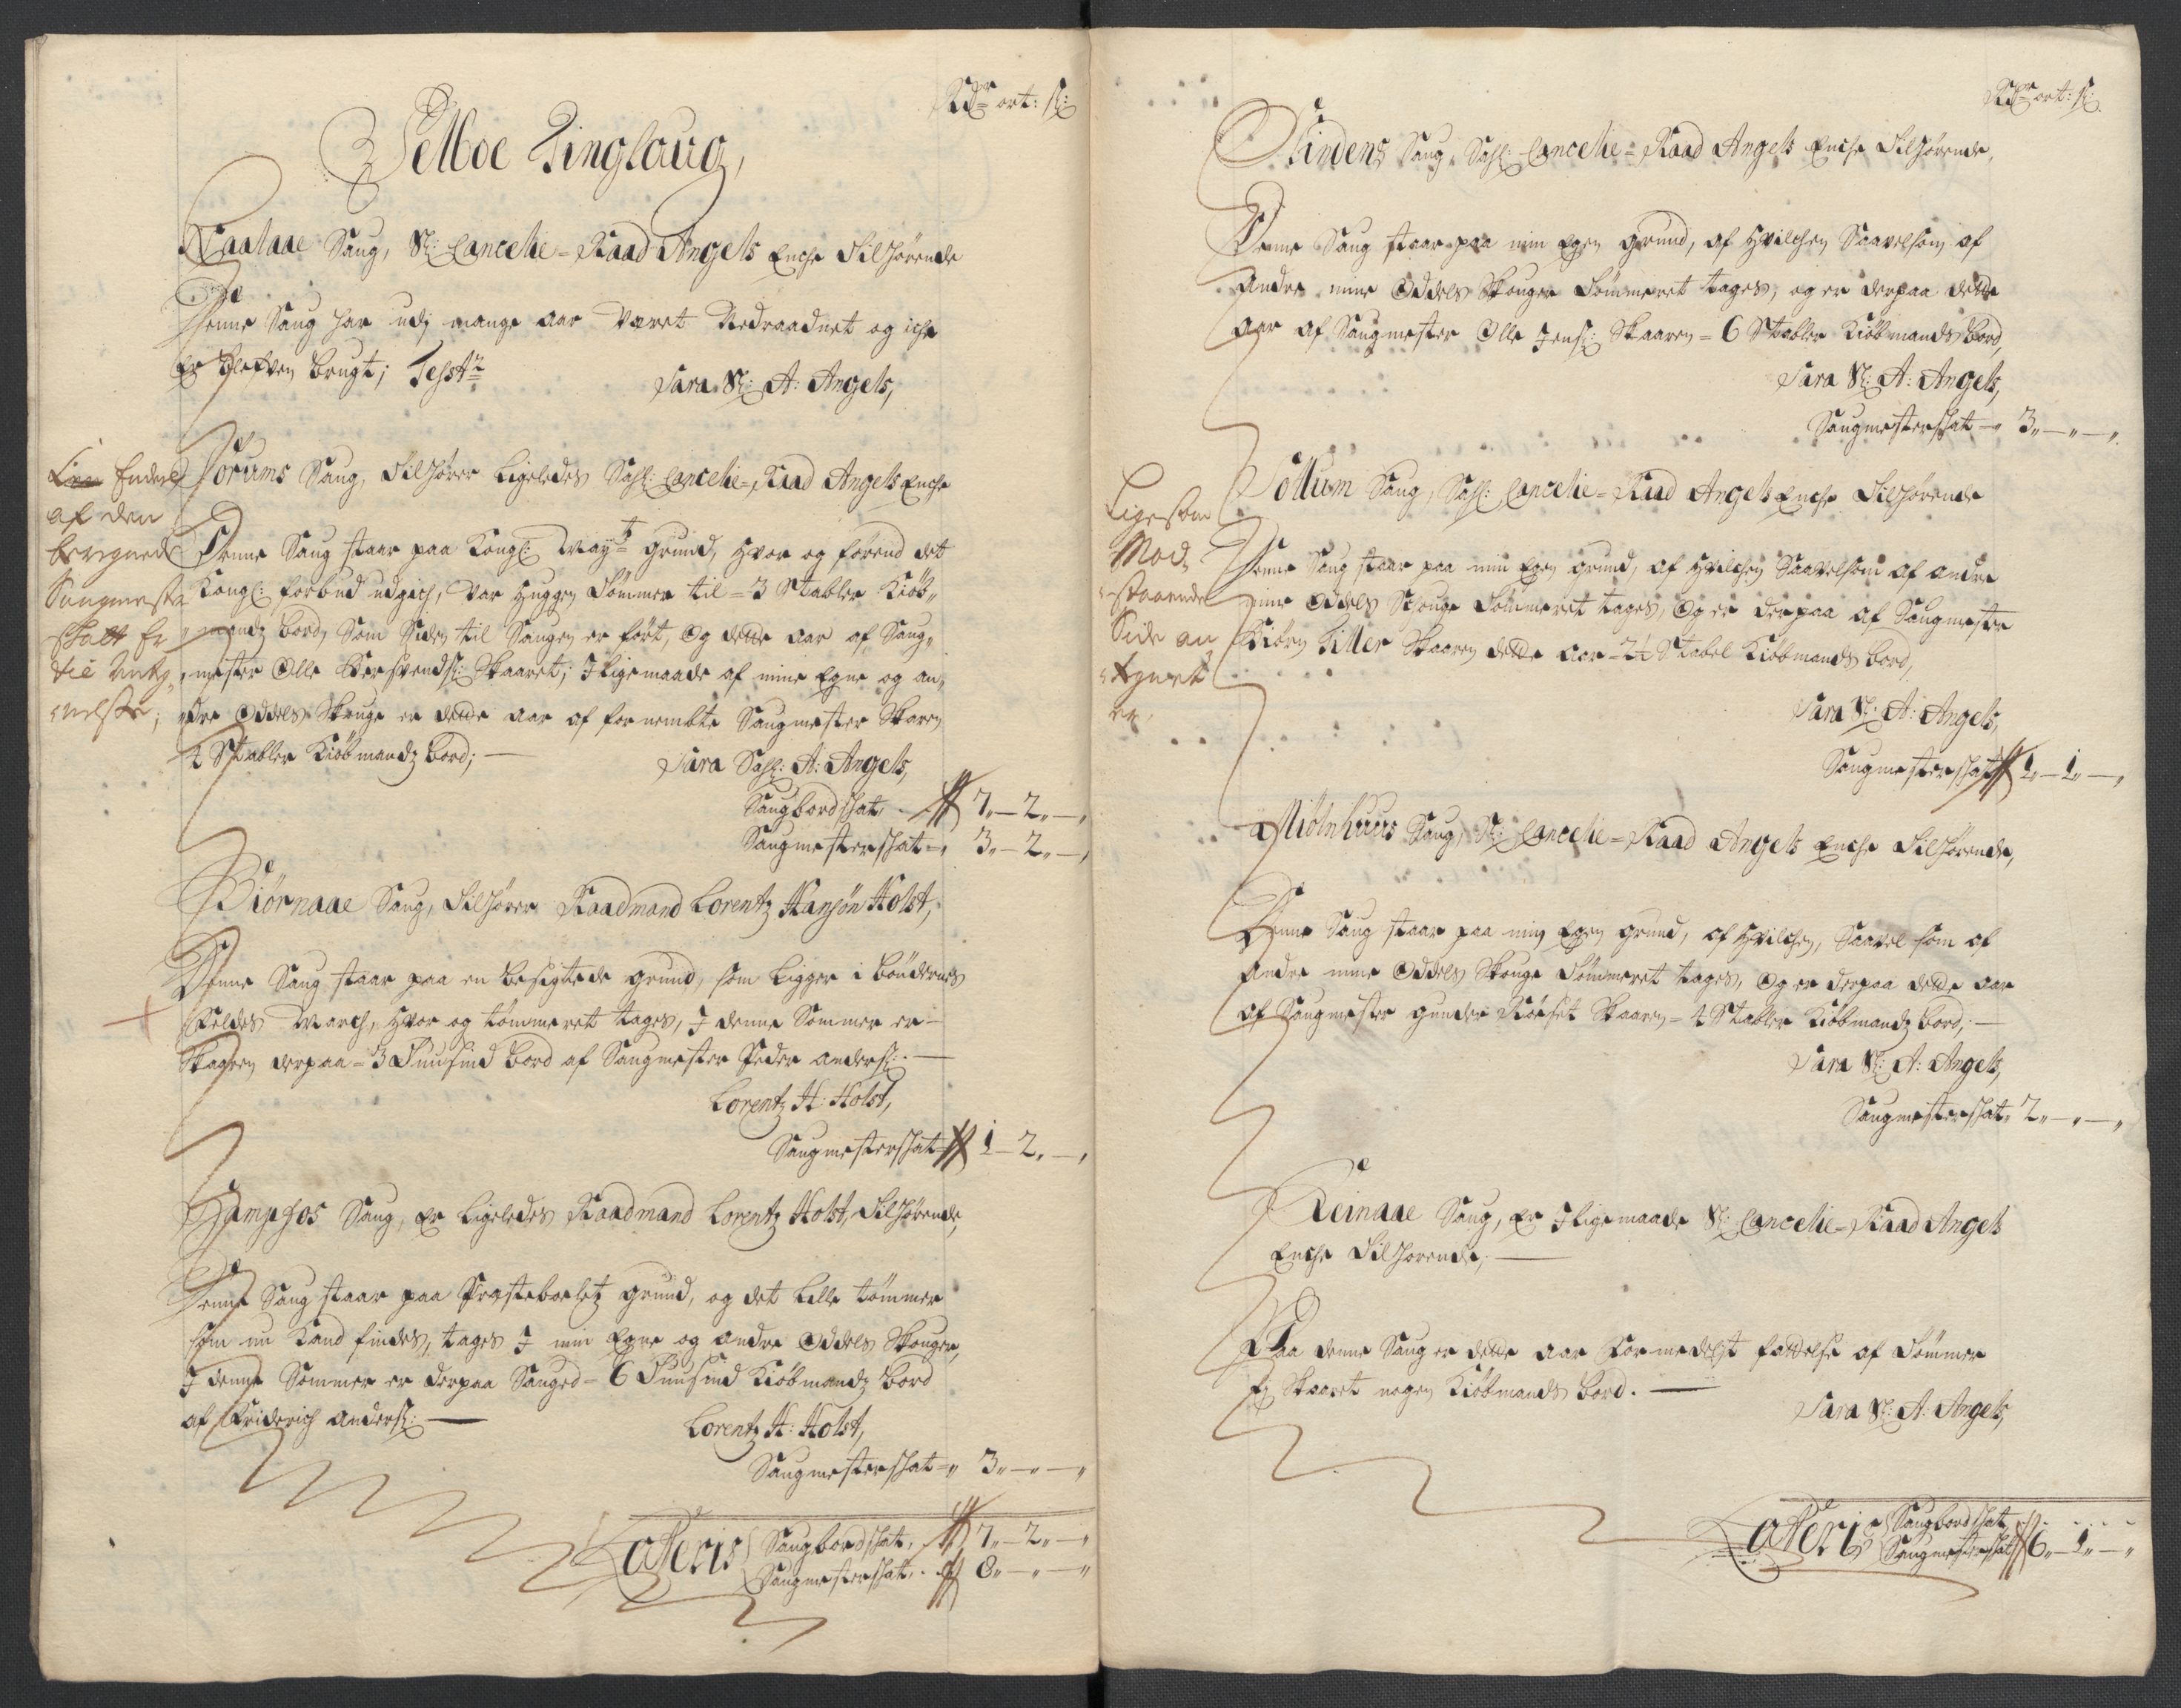 Rdr ort: s:
Selboe Tinglaug,
Kaalaae Saug, Sl: Cancelie=Raad Angels Enche Tilhørende
Denne Saug har udj mange aar været Nedraadnet og iche
er blefven brugt; Testr
Sara Sl: A: Angels,
Sørums Saug, Tilhører ligeledes Sahl: Cancelie=Raad Angels Enche
Denne Saug staar paa Kongl: Mayts grund, hvor og førend det
Kongl: forbud udgich, var hugger Tømmer til = 3 Stabler Kiøb„
„mandz bord, Som Siden til Saugen er ført, Og dette aar af Saug„
„mester Olle Bersvends: Skaaret; Jligemaade af mine Egne og an„
„dre Oddels Skouge er dette aar af for nembte Saugmester Skaaren
4 Stabler Kiøbmandz bord;
Sara Sahl: A: Angels,
Saugbordschat 7„—2„—„
Saugmesterschat =„ 3„—2„—„
Endeel
af den
beregnede
Saugmester
schatt er
til
Biørnaae Saug, Tilhører Raadmand Lorentz Hansøn Holst,
Denne Saug staar paa en besigtede grund, som ligger i bøndernes
Felles March, hvor og tømmeret tages, J denne Sommer er
Skaaren derpaa = 3 Tuusind bord af Saugmester Peder anders:
Lorentz H: Holst,
Saugmesterschat 1—2„—„
Hampfos Saug, er ligeledes Raadmand Lorentz Holst, Tilhørende,
Denne Saug staar paa Præsteboeletz grund, og det lille tømmer
som nu Kand findes, tages J min Egne og andre Oddels Skouger,
J denne Sommer er derpaa Sauged = 6 Tuusind Kiøbmandz bord
af Friderich anders:
Lorentz H: Holst,
Saugmesterschat =„ 3„—„—„
Lateris Saugbordschat, 7„—2„—„
Saugmesterschat, 8„—„—„
Rdr ort: s:
Flindens Saug, Sahl: Cancelie=Raad Angels Enche Tilhørende,
Denne Saug staar paa min Egen grund, af hvilchen Saavelsom af
andre mine Oddels Skouger Tømmeret tages, og er derpaa dette
aar af Saugmester Olle Jens: Skaaren = 6 Stabler Kiøbmands bord,
Sara Sl: A: Angels,
Saugmesterschat —„ 3„—„—„
Ligesom
Mod„
„staaende
Side an„
„tegnet
er.
Sollum Saug, Sahl: Cancelie=Raad Angels Enche Tilhørende
Denne Saug staar paa min Egen grund, af hvilchen Saavelsom af andre
mine Oddels Schouge Tømmeret tages, Og er derpaa af Saugmester
Biørn Tiller Skaaren dette aar = 2½ Stabel Kiøbmands bord,
Sara Sl: A: Angels,
Saugmesterschat 1„—1„—„
Miølnhuus Saug, Sl: Cancelie=Raad Angels Enche Tilhørende,
Denne Saug staar paa min Egen grund, af hvilchen, Saavel som af
andre mine Oddels Skouge Tømmeret tages, Og er derpaa dette aar
af Saugmester gunder Skaaren = 4 Stabler Kiøbmandz bord;
Sara Sl: A: Angels,
Saugmesterschat„ 2„—„—„
Reinaae Saug, er Jligemaade Sl: Cancelie=Raad Angels
Enche Tilhørende;
Paa denne Saug er dette aar Formedelst fattelse af Tømmer
Ej Skaaret nogen Kiøbmands bord.
Sara Sl: A: Angels,
Lateris Saugbordschat
Saugmesterschat 6„—1„—„